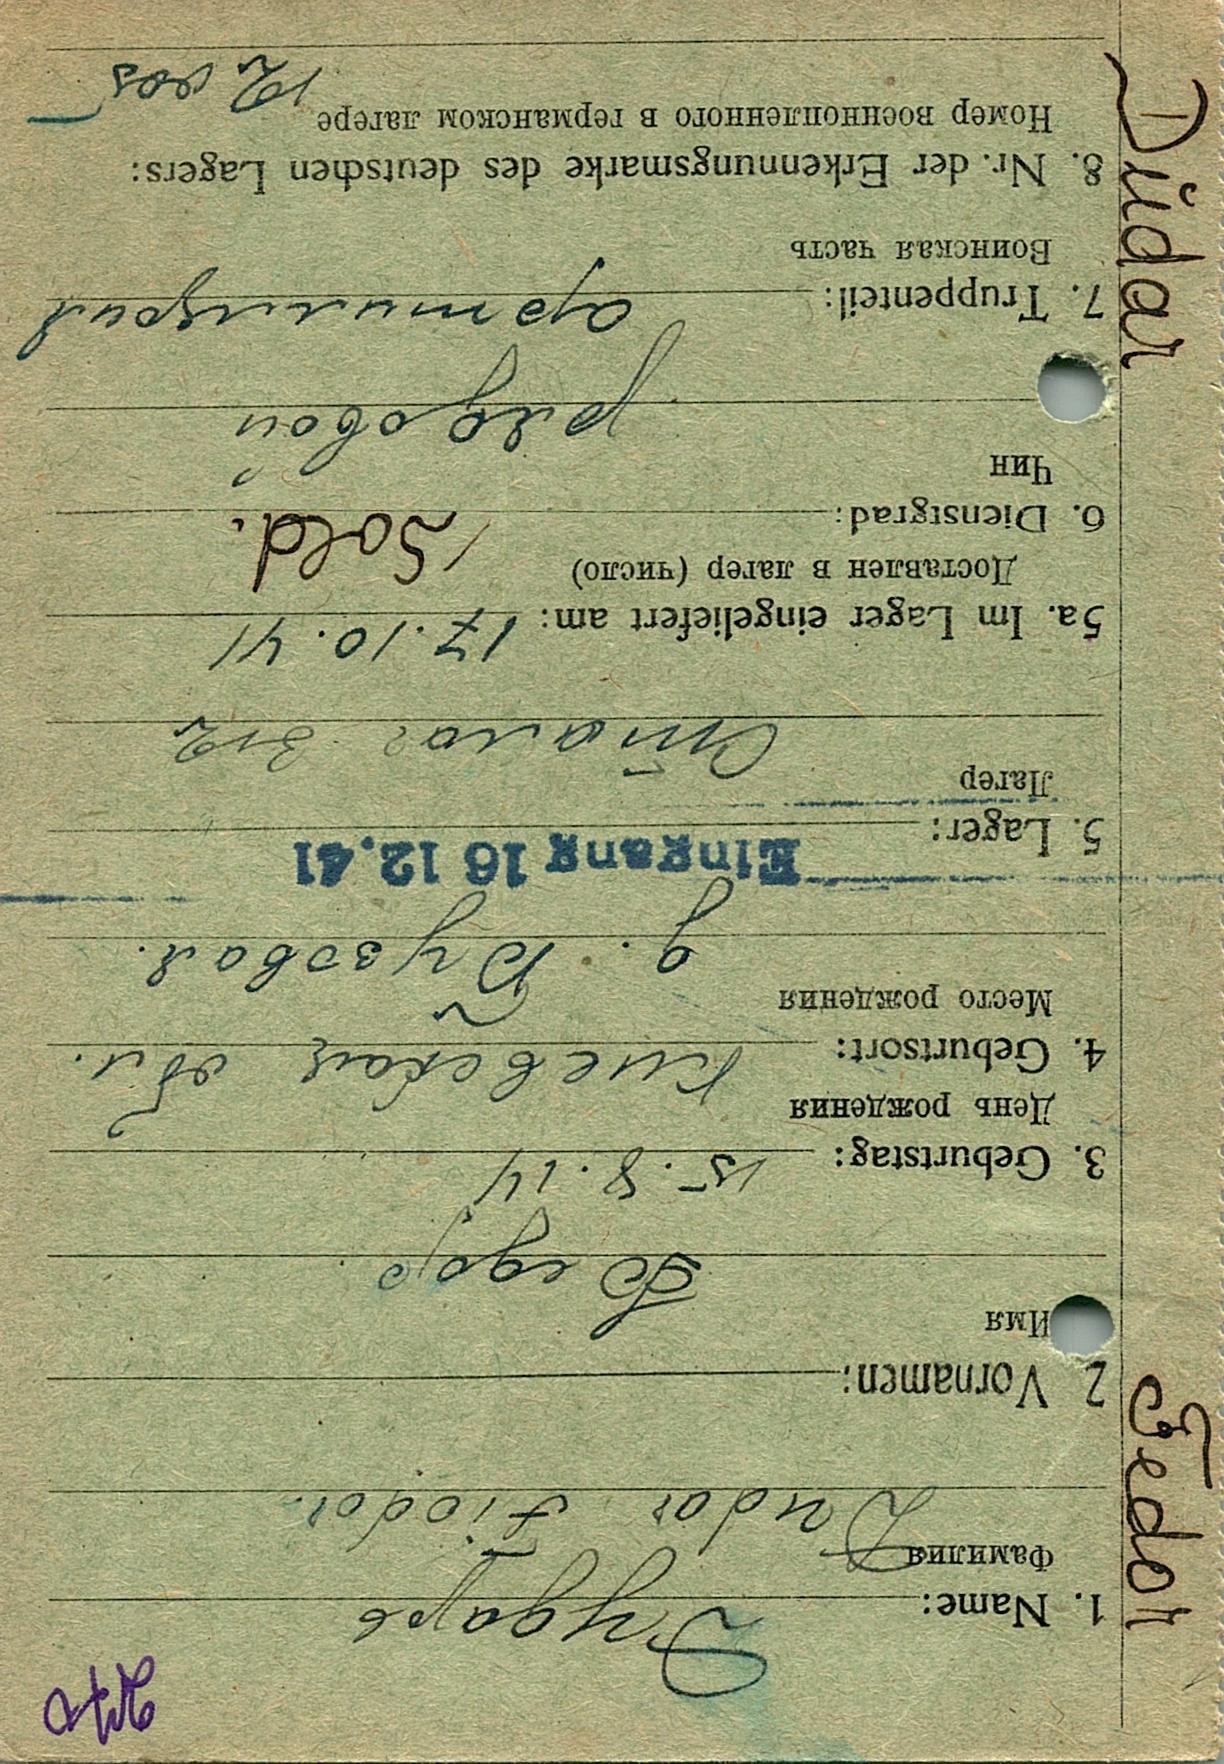 1. Name:
Дударь
Фамилия
Dudar Fiodor.
2 Vornamen:
Имя
Федор
3. Geburtstag: 15.8.14
День рождения
4. Geburtsort: Киевская обл.
Место рождения
д. Бузовая.
Eingang 16 12.41
5. Lager:
Лагер
Сталаг 312
5a. Im Lager eingeliefert am: 17.10.41
Доставлен в лагер (число)
6. Dienstgrad: Sold.
Чин
рядовой
7. Truppenteil: артиллерия
Воинская часть
8. Nr. der Erkennungsmarke des deutschen Lagers:
Номер военнопленного в германском лагере
Düdar Fedor